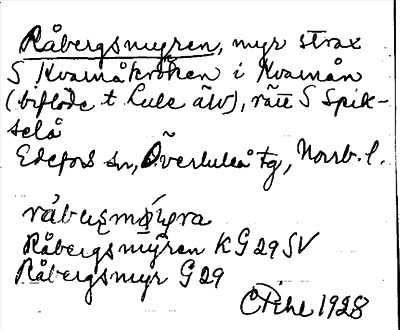 Råbergsmyren, myr strax
S Kvarnåkröken i Kvarnån
(biflöde t Lule älv), rätt S Spik-
selå
Edefors sn, Överluleå tg, Norrb. l.
Råbergsmyren KG 29 SV
Råbergsmyr G 29
1928